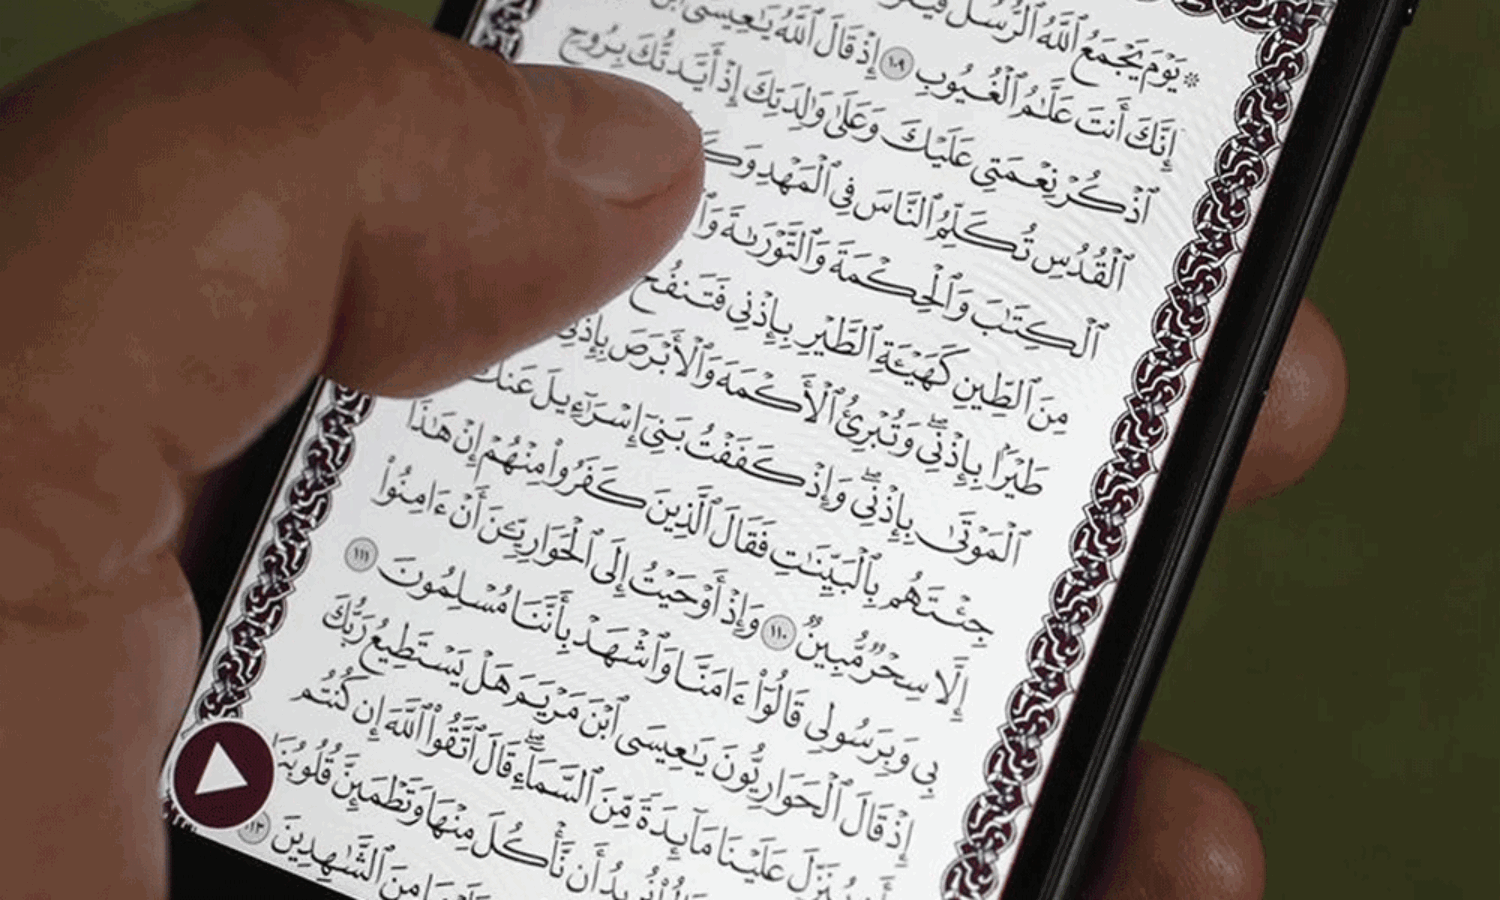 ۞ يَوْمَ يَجْمَعُ ٱللَّهُ ٱلرُّسُلَ
إِنَّكَ أَنتَ عَلَّٰمُ ٱلْغُيُوبِ ١٠٩ إِذْ قَالَ ٱللَّهُ يَٰعِيسَى
ٱذْكُرْ نِعْمَتِى عَلَيْكَ وَعَلَىٰ وَٰلِدَتِكَ إِذْ أَيَّدتُّكَ بِرُوحِ
ٱلْقُدُسِ تُكَلِّمُ ٱلنَّاسَ فِى ٱلْمَهْدِ
ٱلْكِتَٰبَ وَٱلْحِكْمَةَ وَٱلتَّوْرَىٰةَ
مِنَ ٱلطِّينِ كَهَيْـَٔةِ ٱلطَّيْرِ بِإِذْنِى فَتَنفُخُ
طَيْرًۢا بِإِذْنِى ۖ وَتُبْرِئُ ٱلْأَكْمَهَ وَٱلْأَبْرَصَ بِإِذْنِى
ٱلْمَوْتَىٰ بِإِذْنِى ۖ وَإِذْ كَفَفْتُ بَنِىٓ إِسْرَٰٓءِيلَ عَنكَ
جِئْتَهُم بِٱلْبَيِّنَٰتِ فَقَالَ ٱلَّذِينَ كَفَرُوا۟ مِنْهُمْ إِنْ هَٰذَآ
إِلَّا سِحْرٌ مُّبِينٌ ١١٠ وَإِذْ أَوْحَيْتُ إِلَى ٱلْحَوَارِيِّـۧنَ أَنْ ءَامِنُوا۟
بِى وَبِرَسُولِى قَالُوٓا۟ ءَامَنَّا وَٱشْهَدْ بِأَنَّنَا مُسْلِمُونَ ١١١
إِذْ قَالَ ٱلْحَوَارِيُّونَ يَٰعِيسَى ٱبْنَ مَرْيَمَ هَلْ يَسْتَطِيعُ رَبُّكَ
أَن يُنَزِّلَ عَلَيْنَا مَآئِدَةً مِّنَ ٱلسَّمَآءِ ۖ قَالَ ٱتَّقُوا۟ ٱللَّهَ إِن كُنتُم
نُرِيدُ أَن نَّأْكُلَ مِنْهَا وَتَطْمَئِنَّ قُلُوبُنَا
مِنَ ٱلشَّٰهِدِينَ ١١٣